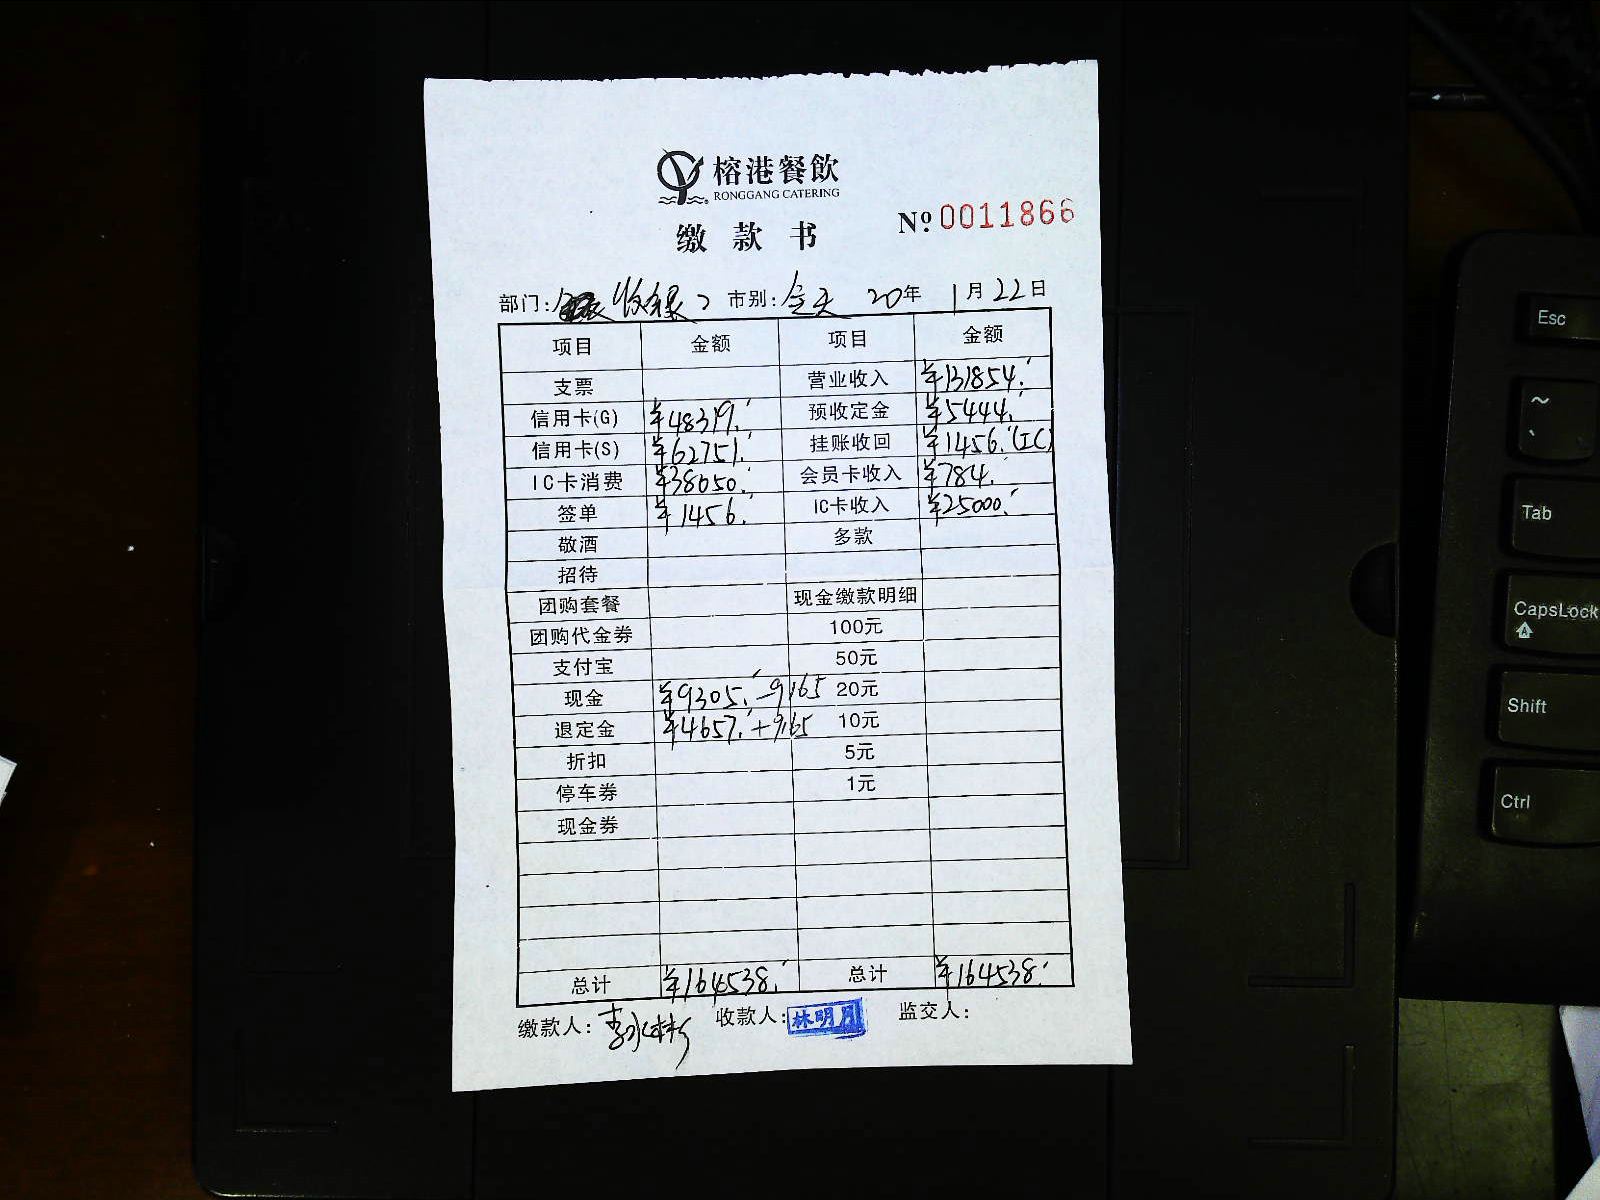 榕港餐飲
RONGGANG CATERING
缴款书
Nº 0011866
部门: 收银2 市别: 全天 20年 1月22日
项目 金额 项目 金额
支票 营业收入 ¥131854.
信用卡(G) ¥48319. 预收定金 ¥5444.
信用卡(S) ¥62751. 挂账收回 ¥1456.(IC)
IC卡消费 ¥38050. 会员卡收入 ¥784.
签单 ¥1456. IC卡收入 ¥25000.
敬酒 多款
招待
团购套餐 现金缴款明细
团购代金券 100元
支付宝 50元
现金 ¥9305. -9165 20元
退定金 ¥4657. +9165 10元
折扣 5元
停车券 1元
现金券
总计 ¥164538. 总计 ¥164538.
缴款人: 收款人: 林明月 监交人:
Esc
~
Tab
CapsLock
Shift
Ctrl